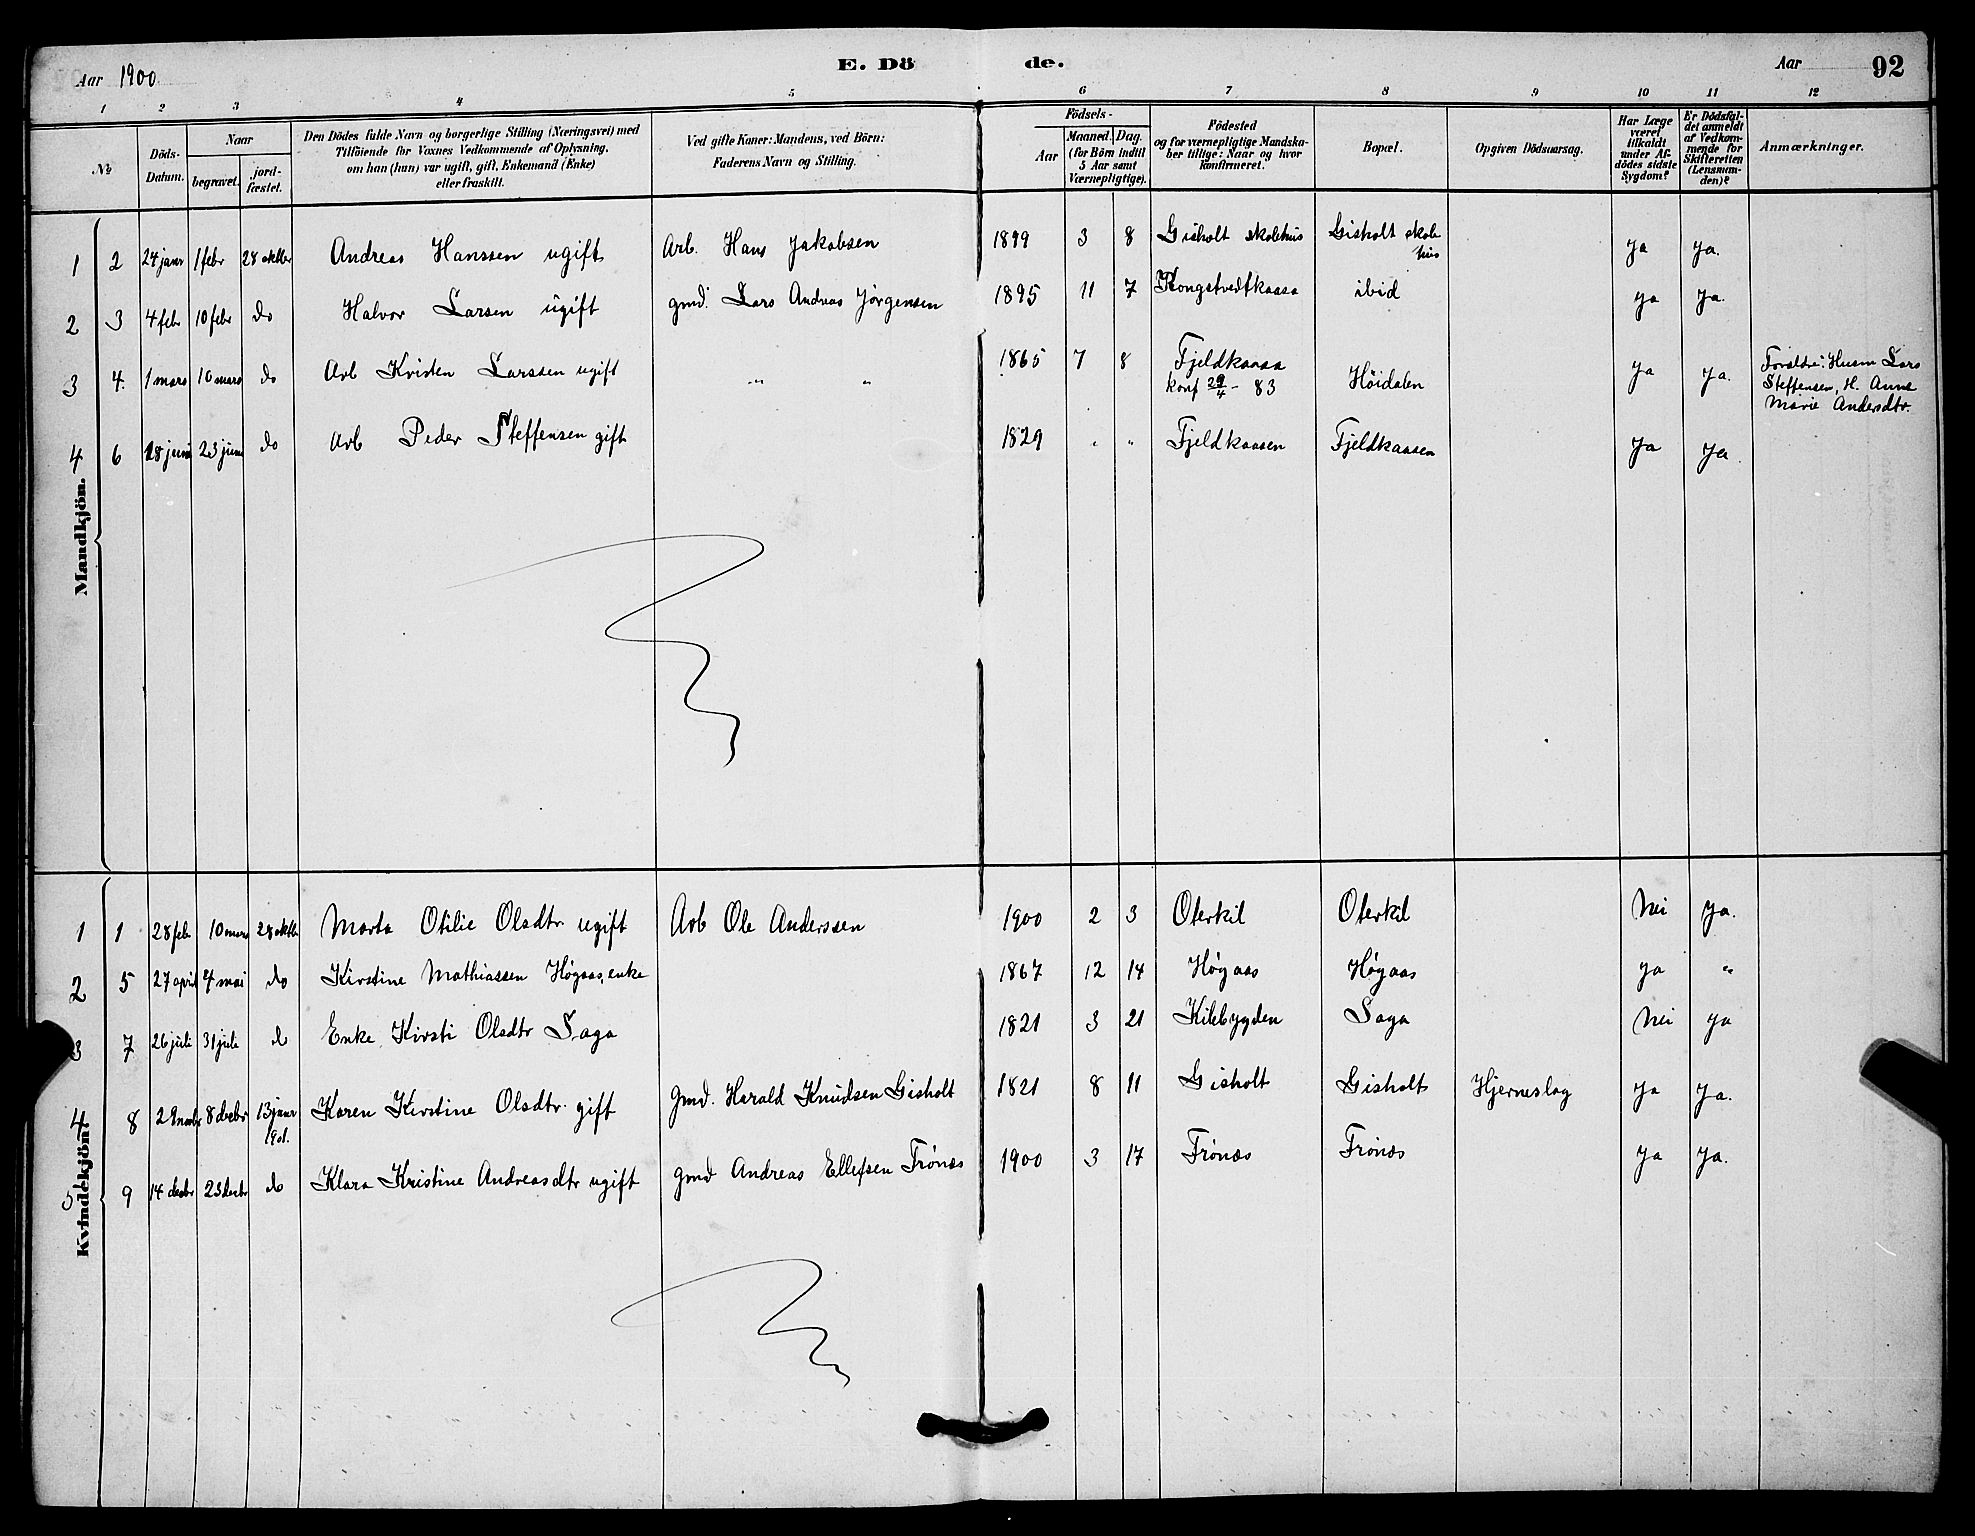 Aar 1900
E. Dö
de.
Aar
92
1 2 3 4 5 6 7 8 9 10 11 12
No
Döds-
Datum.
Naar
begravet.
jord-
fæstet.
Den Dödes fulde Navn og borgerlige Stilling (Næringsvei) med
Tilföiende for Voxnes Vedkommende af Oplysning,
om han (hun) var ugift, gift, Enkemand (Enke)
eller fraskilt.
Ved gifte Koner: Mandens, ved Börn:
Faderens Navn og Stilling.
Födsels-
Aar
Maaned.
Dag.
(for Börn indtil
5 Aar samt
Værnepligtige).
Födested
og for værnepligtige Mandska-
ber tillige: Naar og hvor
konfirmeret.
Bopæl.
Opgiven Dödsaarsag.
Har Læge
været
tilkaldt
under Af-
dödes sidste
Sygdom?
Er Dödsfal-
det anmeldt
af Vedkom-
mende for
Skifteretten
(Lensman-
den)?
Anmærkninger.
Mandkjön.
1 2 24 janr 1 febr 28 oktbr Andreas Hanssen ugift Arb. Hans Jakobsen 1899 3 8 Gisholt skolehus Gisholt skole
hus ja ja.
2 3 4 febr 10 febr do Halvor Larsen ugift gmd. Lars Andreas Jørgensen 1895 11 7 Kongstvedtkaasa ibid ja ja.
3 4. 1 mars 10 mars do Arb Kristen Larssen ugift " " 1865 7 8 Fjeldkaasa
konf 29/4 - 83 Höidalen ja ja. Forældre: Husm Lars
Steffensen, H. Anne
Marie Andersdtr.
4 6 18 juni 23 juni do Arb Peder Steffensen gift 1829 " " Fjeldkaasen Fjeldkaasen ja ja
Kvindekjön.
1 1 28 febr 10 mars 28 oktbr Marta Otilie Olsdtr ugift Arb Ole Anderssen 1900 2 3 Oterkil Oterkil Nei ja.
2 5 27 april 4 mai do Kirstine Mathiassen Høgaas, enke 1867 12 14 Høgaas Høgaas ja "
3 7 26 juli 31 juli do Enke Kirsti Olsdtr Saga 1821 3 21 Kilebygden Saga Nei ja
4 8 29 novbr 8 decbr 13 janr
1901. Karen Kirstine Olsdtr. gift gmd. Harald Knudsen Gisholt 1821 8 11 Gisholt Gisholt Hjerneslag ja ja.
5 9 14 decbr 23 decbr do Klara Kristine Andreasdtr ugift gmd Andreas Ellefsen Frönæs 1900 3 17 Frönæs Frönæs ja ja.